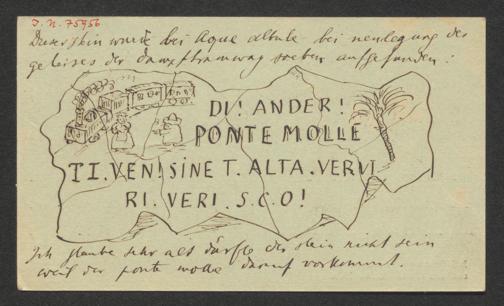 I.N. 75956
Dieser Stein wurde bei Aqua albule bei neulegung des
geleises der dampftramway soeben aufgefunden:
DI! ANDER!
PONTE MOLLE
TI.VEN! SINE T. ALTA.VERVI
RI. VERI. S.C.O!
Ich glaube sehr alt dürfte der stein nicht sein
weil der ponte molle darauf vorkommt.